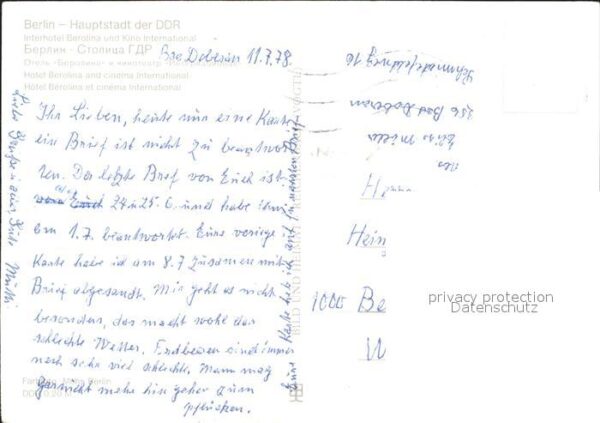 Berlin – Hauptstadt der DDR
Interhotel Berolina und Kino International
Берлин - Столица ГДР
Отель «Беролина» и кинотеатр
Hotel Berolina and cinema International
Hotel Berolina et cinéma International
Bad Doberan 11.7.78
Ihr Lieben, heute nur eine Karte
ein Brief ist nicht zu beantwor
ten. Der letzte Brief von Euch ist
24 u 25.6. und habe ihn
am 1.7. beantwortet. Eine vorige
Karte habe ich am 8.7 zusammen mit
Brief abgesandt. Mir geht es nicht
besonders, das macht wohl das
schlechte Wetter. Erdbeeren sind immer
noch sehr viel schlecht. Mann mag
garnicht mehr hin gehen zum
pflücken.
Eine Karte hab ich auf
Liebe Grüße
Mutti
BILD UND HEIMAT
256 Bad Doberan
Müller
Abs
H
Hein
1000 Be
W
privacy protection
Datenschutz
Berlin
DDR 0,20 M